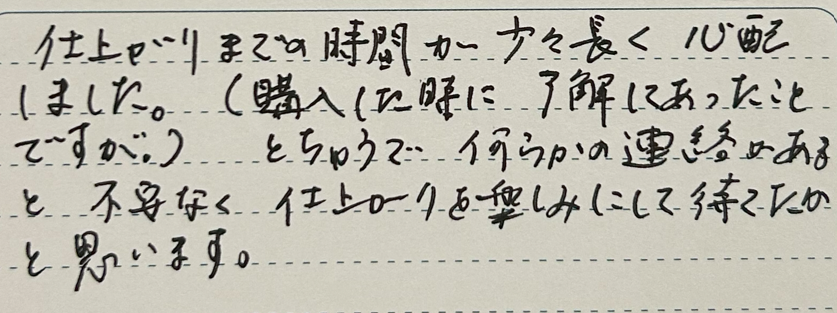 仕上がりまでの時間が少々長く心配
しました。（購入した時に了解にあったこと
ですが。） とちゅうで何らかの連絡がある
と不安なく仕上がりを楽しみにして待てたか
と思います。